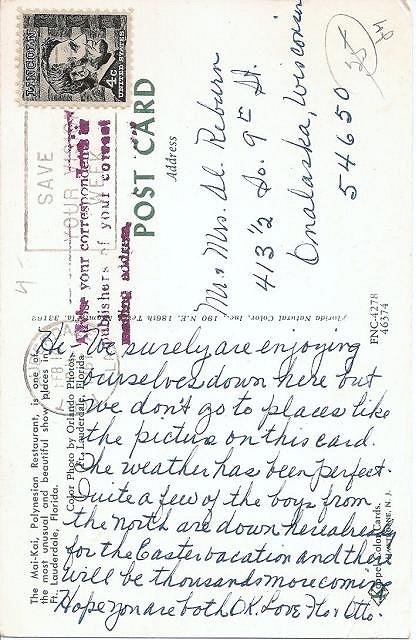 LINCOLN
4¢
UNITED STATES
SAVE
YOUR VISION
WEEK
Advise your correspondents or
publishers of your correct
mailing address
POST CARD
Address
Mr. Mrs. Al Reburn
413½ So. 9th St.
Onalaska, Wisconsin
54650
Florida Natural Color, Inc., 190 N.E. 186th Ter. Miami, Fla. 33162
FNC-4278
46374
The Mai-Kai, Polynesian Restaurant, is one of
the most unusual and beautiful show places in
Ft. Lauderdale, Florida.
Color Photo by Orlando Photos,
Ft. Lauderdale, Florida
Hi - We surely are enjoying
ourselves down here but
we don't go to places like
the picture on this card.
The weather has been perfect.
Quite a few of the boys from
the north are down here already
for the Easter vacation and there
will be thousands more coming
Hope you are both O.K. Love Flo & Otto.
Color Cards,
N. J.